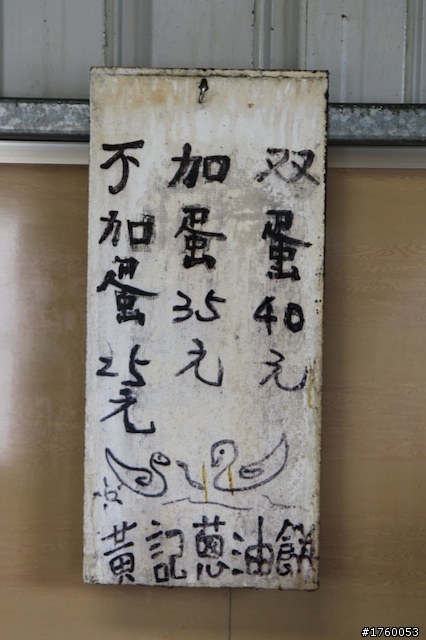 双蛋40元
加蛋35元
不加蛋25元
黃記蔥油餅
#1760053